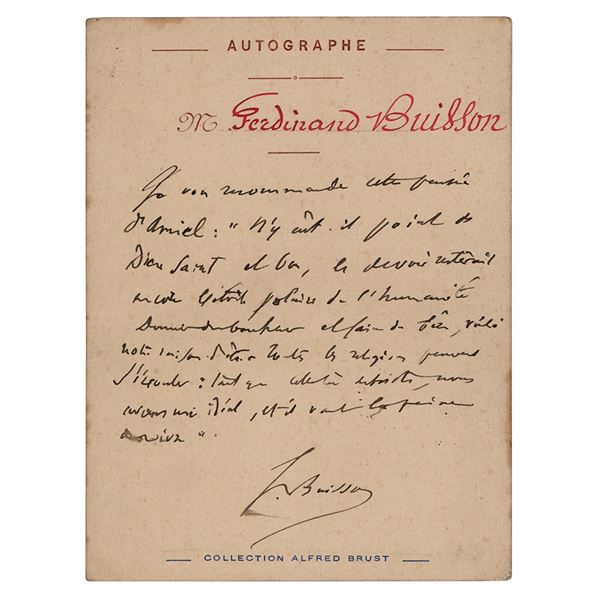 AUTOGRAPHE
M Ferdinand Buisson
Je vous recommande cette pensée
d'Amiel : "N'y eût-il point de
Dieu saint et bon, le devoir resterait
encore l'étoile polaire de l'humanité
Donner du bonheur et faire du bien, voilà
notre raison d'être. Toutes les religions peuvent
s'écrouler : tant que celle-là subsiste, nous
avons un idéal, et il vaut la peine
de vivre".
F. Buisson
COLLECTION ALFRED BRUST